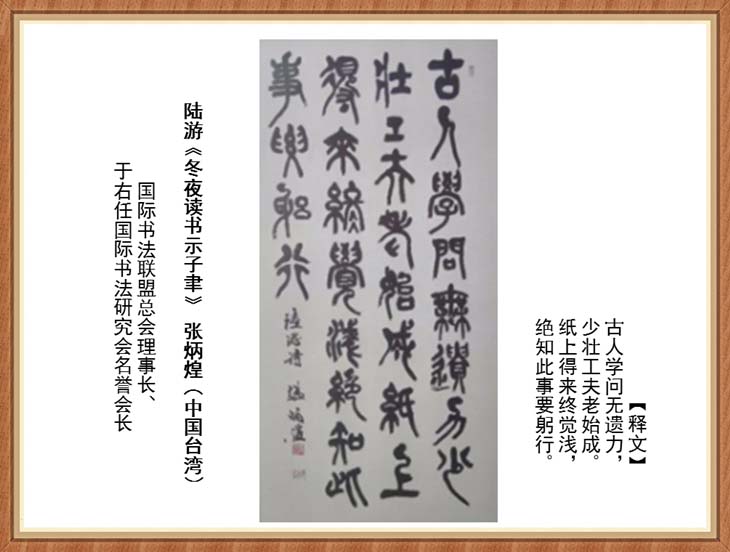 【释文】
古人学问无遗力，
少壮工夫老始成。
纸上得来终觉浅，
绝知此事要躬行。
古人學問無遺力少
壯工夫老始成紙上
得來終覺淺絕知此
事要躬行
陸游詩 張炳煌
陆游《冬夜读书示子聿》 张炳煌（中国台湾）
国际书法联盟总会理事长、
于右任国际书法研究会名誉会长